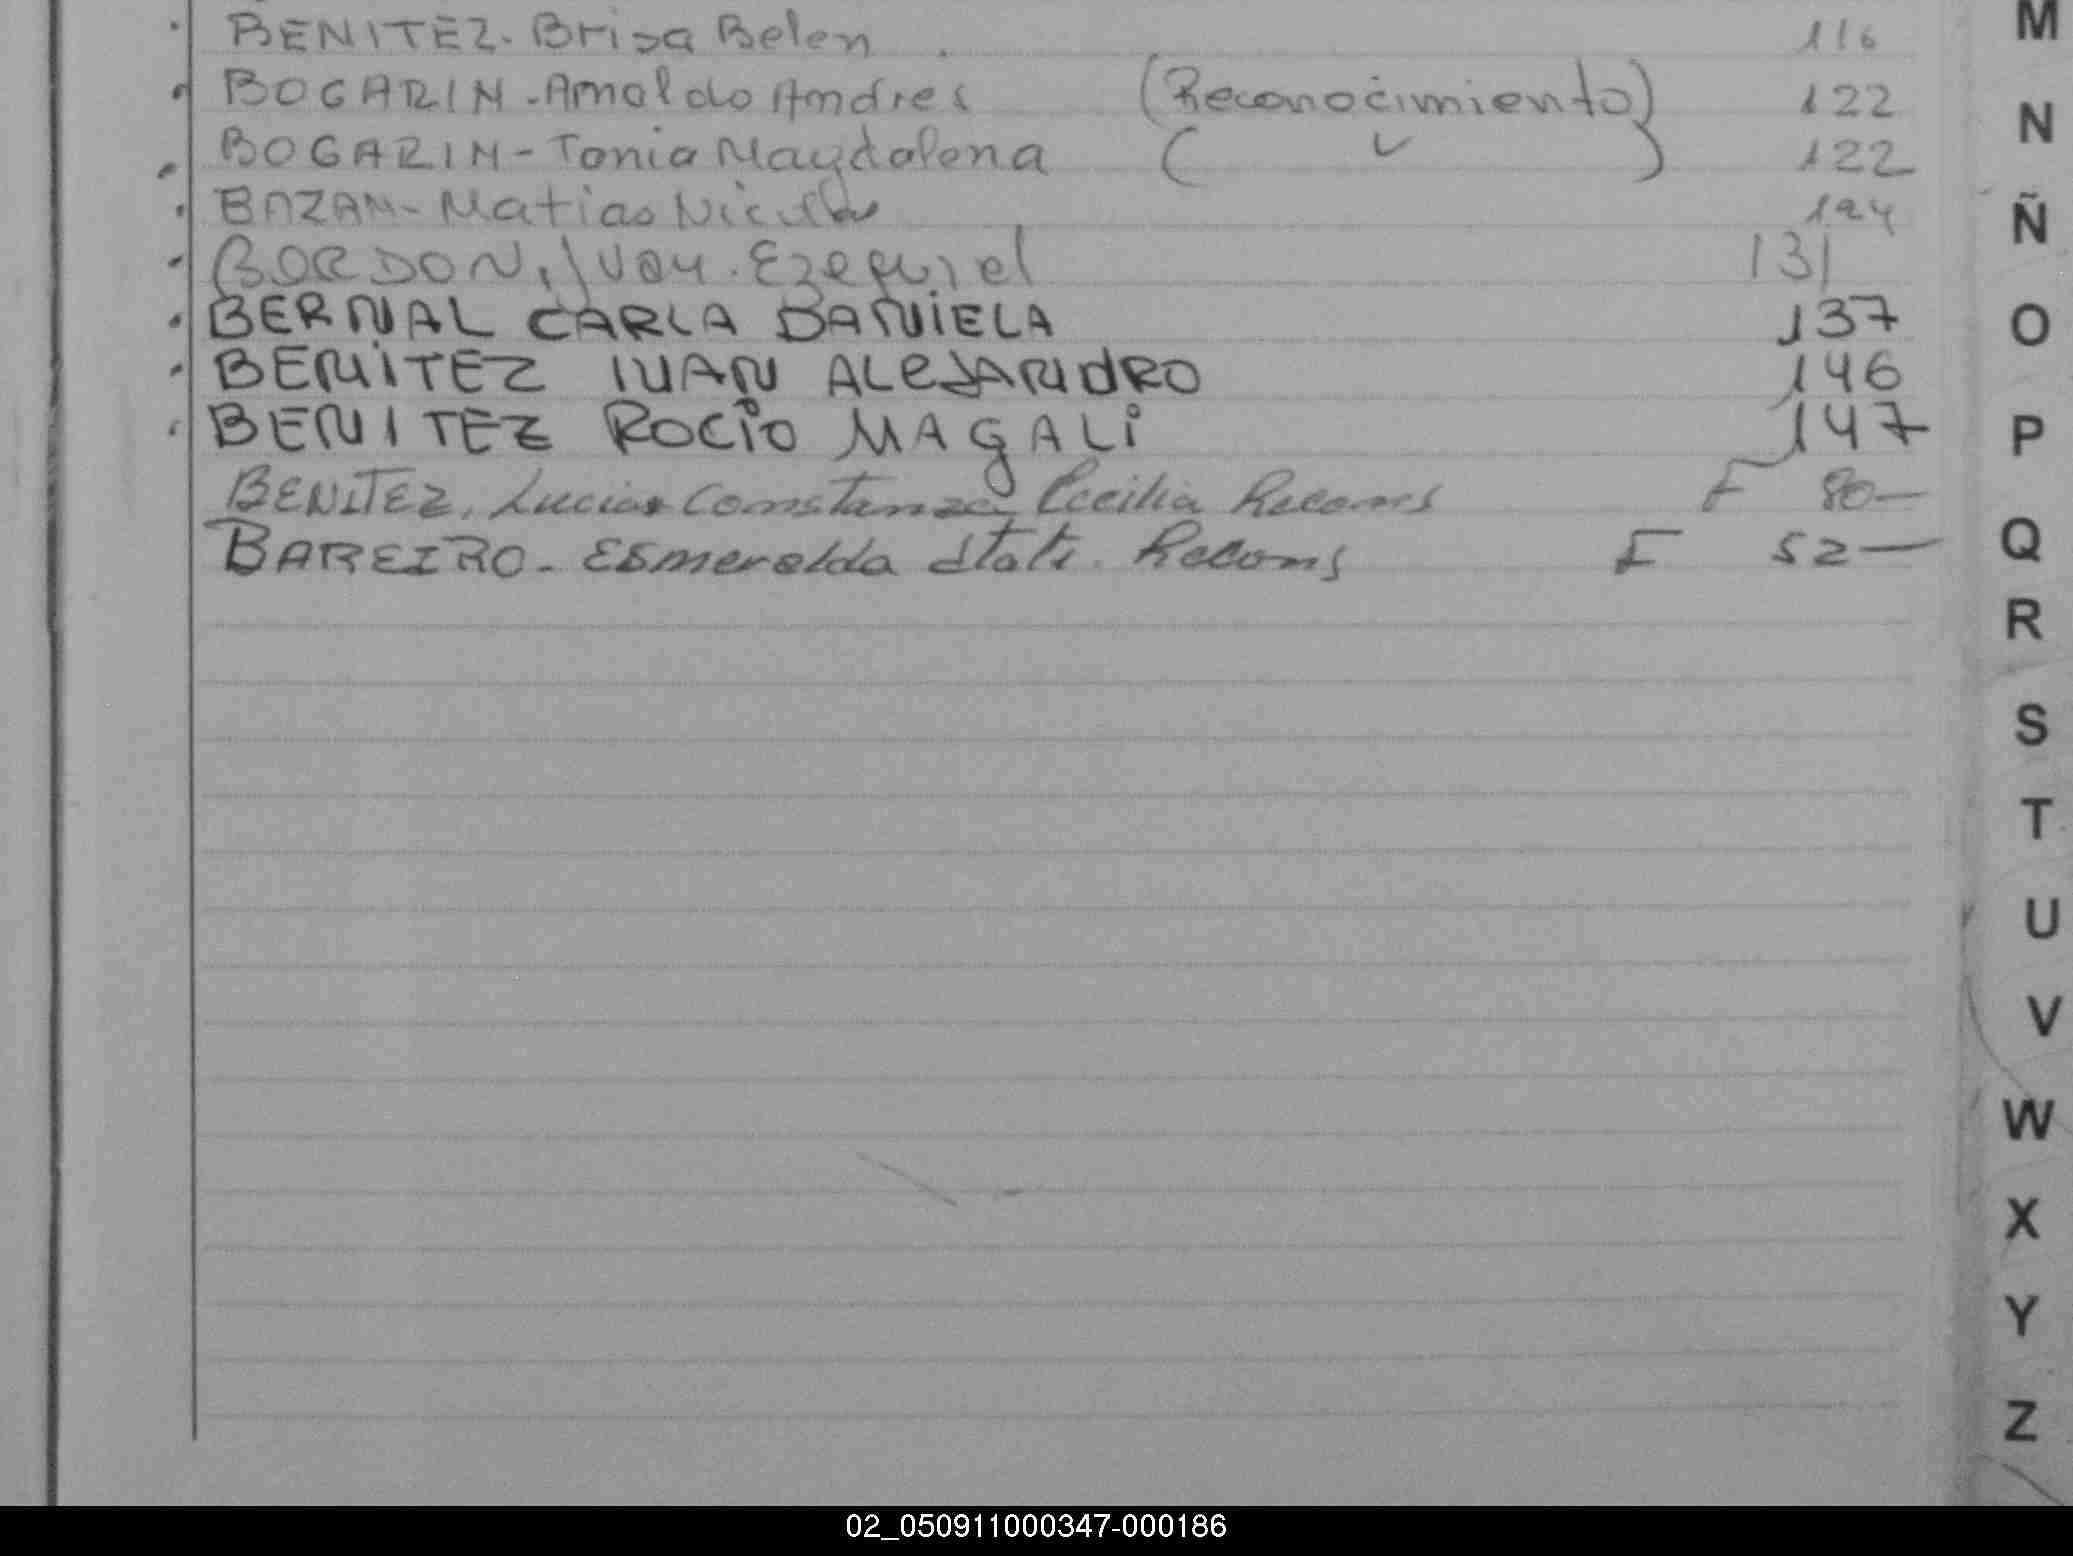 BENITEZ. Brisa Belen. 116
BOGARIN - Arnoldo Andres (Reconocimiento) 122
BOGARIN - Tonia Magdalena ( ) 122
BAZAN - Matias Nicolas 124
BORDON, Juan. Ezequiel 131
BERNAL CARLA DANIELA 137
BENITEZ IVAN ALEJANDRO 146
BENITEZ ROCIO MAGALI 147
BENITEZ, Lucia Constanza Cecilia F 80—
BAREIRO - Esmeralda F 52—
M
N
Ñ
O
P
Q
R
S
T
U
V
W
X
Y
Z
02_050911000347-000186